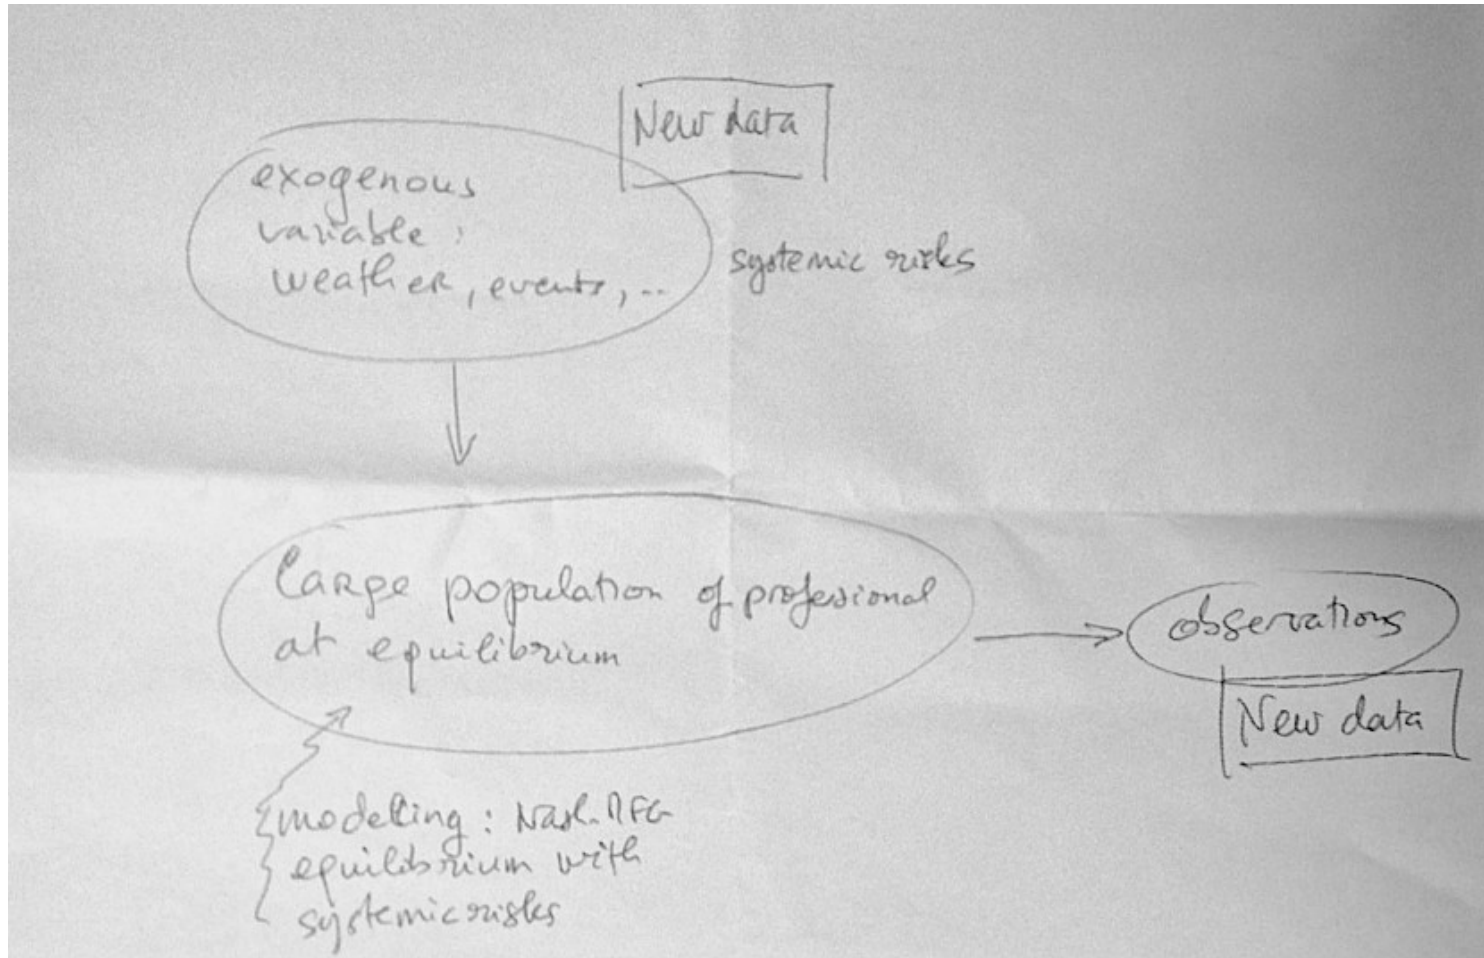 New data
exogenous
variable :
weather, events, ..
systemic risks
Large population of professional
at equilibrium
observations
New data
modelling : Nash-MFG
equilibrium with
systemic risks